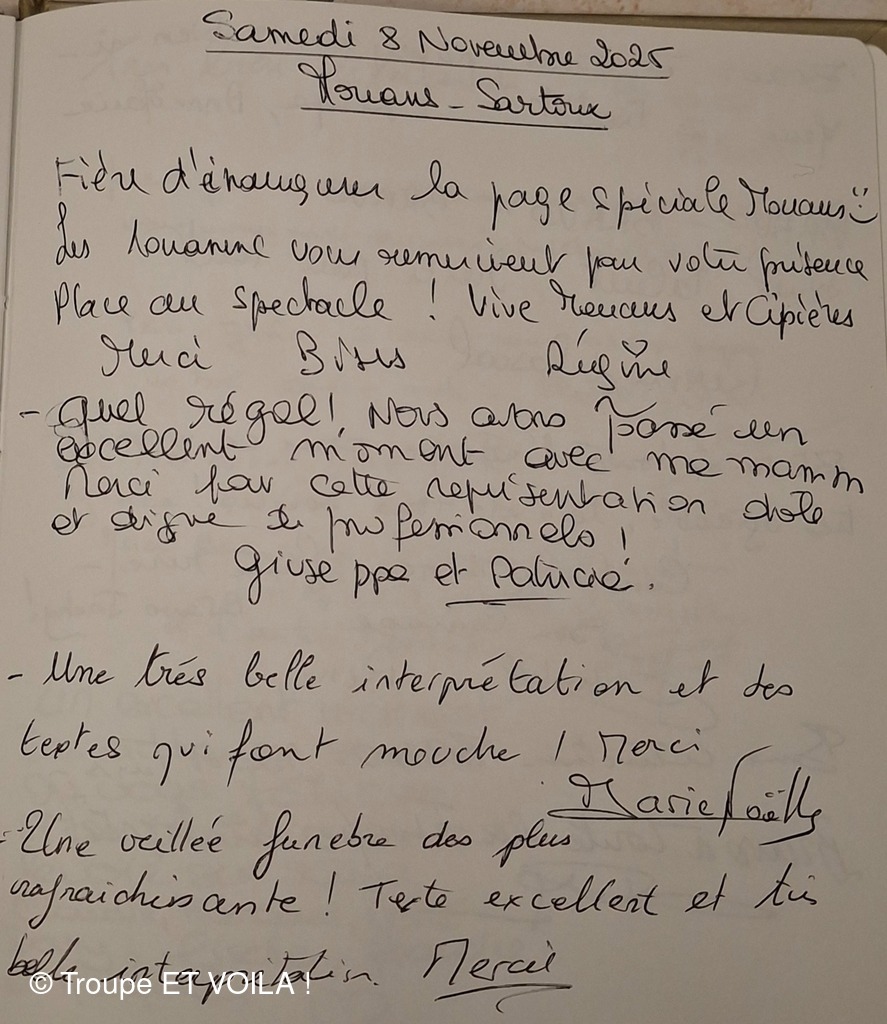 Samedi 8 Novembre 2025
Mouans-Sartoux
Fière d'énaugurer la page spéciale Mouans :)
Les vous remercient pour votre présence
Place au spectacle ! Vive Mouans et Cipières
Merci Bises Régine
- Quel régal ! Nous avons passé un
excellent moment avec ma maman
Merci pour cette représentation drôle
et digne de professionnels !
Giuseppe et Patricia.
- Une très belle interprétation et des
textes qui font mouche ! Merci
Marie Noëlle
- Une veillée funèbre des plus
rafraichissante ! Texte excellent et très
belle interprétation. Merci
© Troupe ET VOILA !